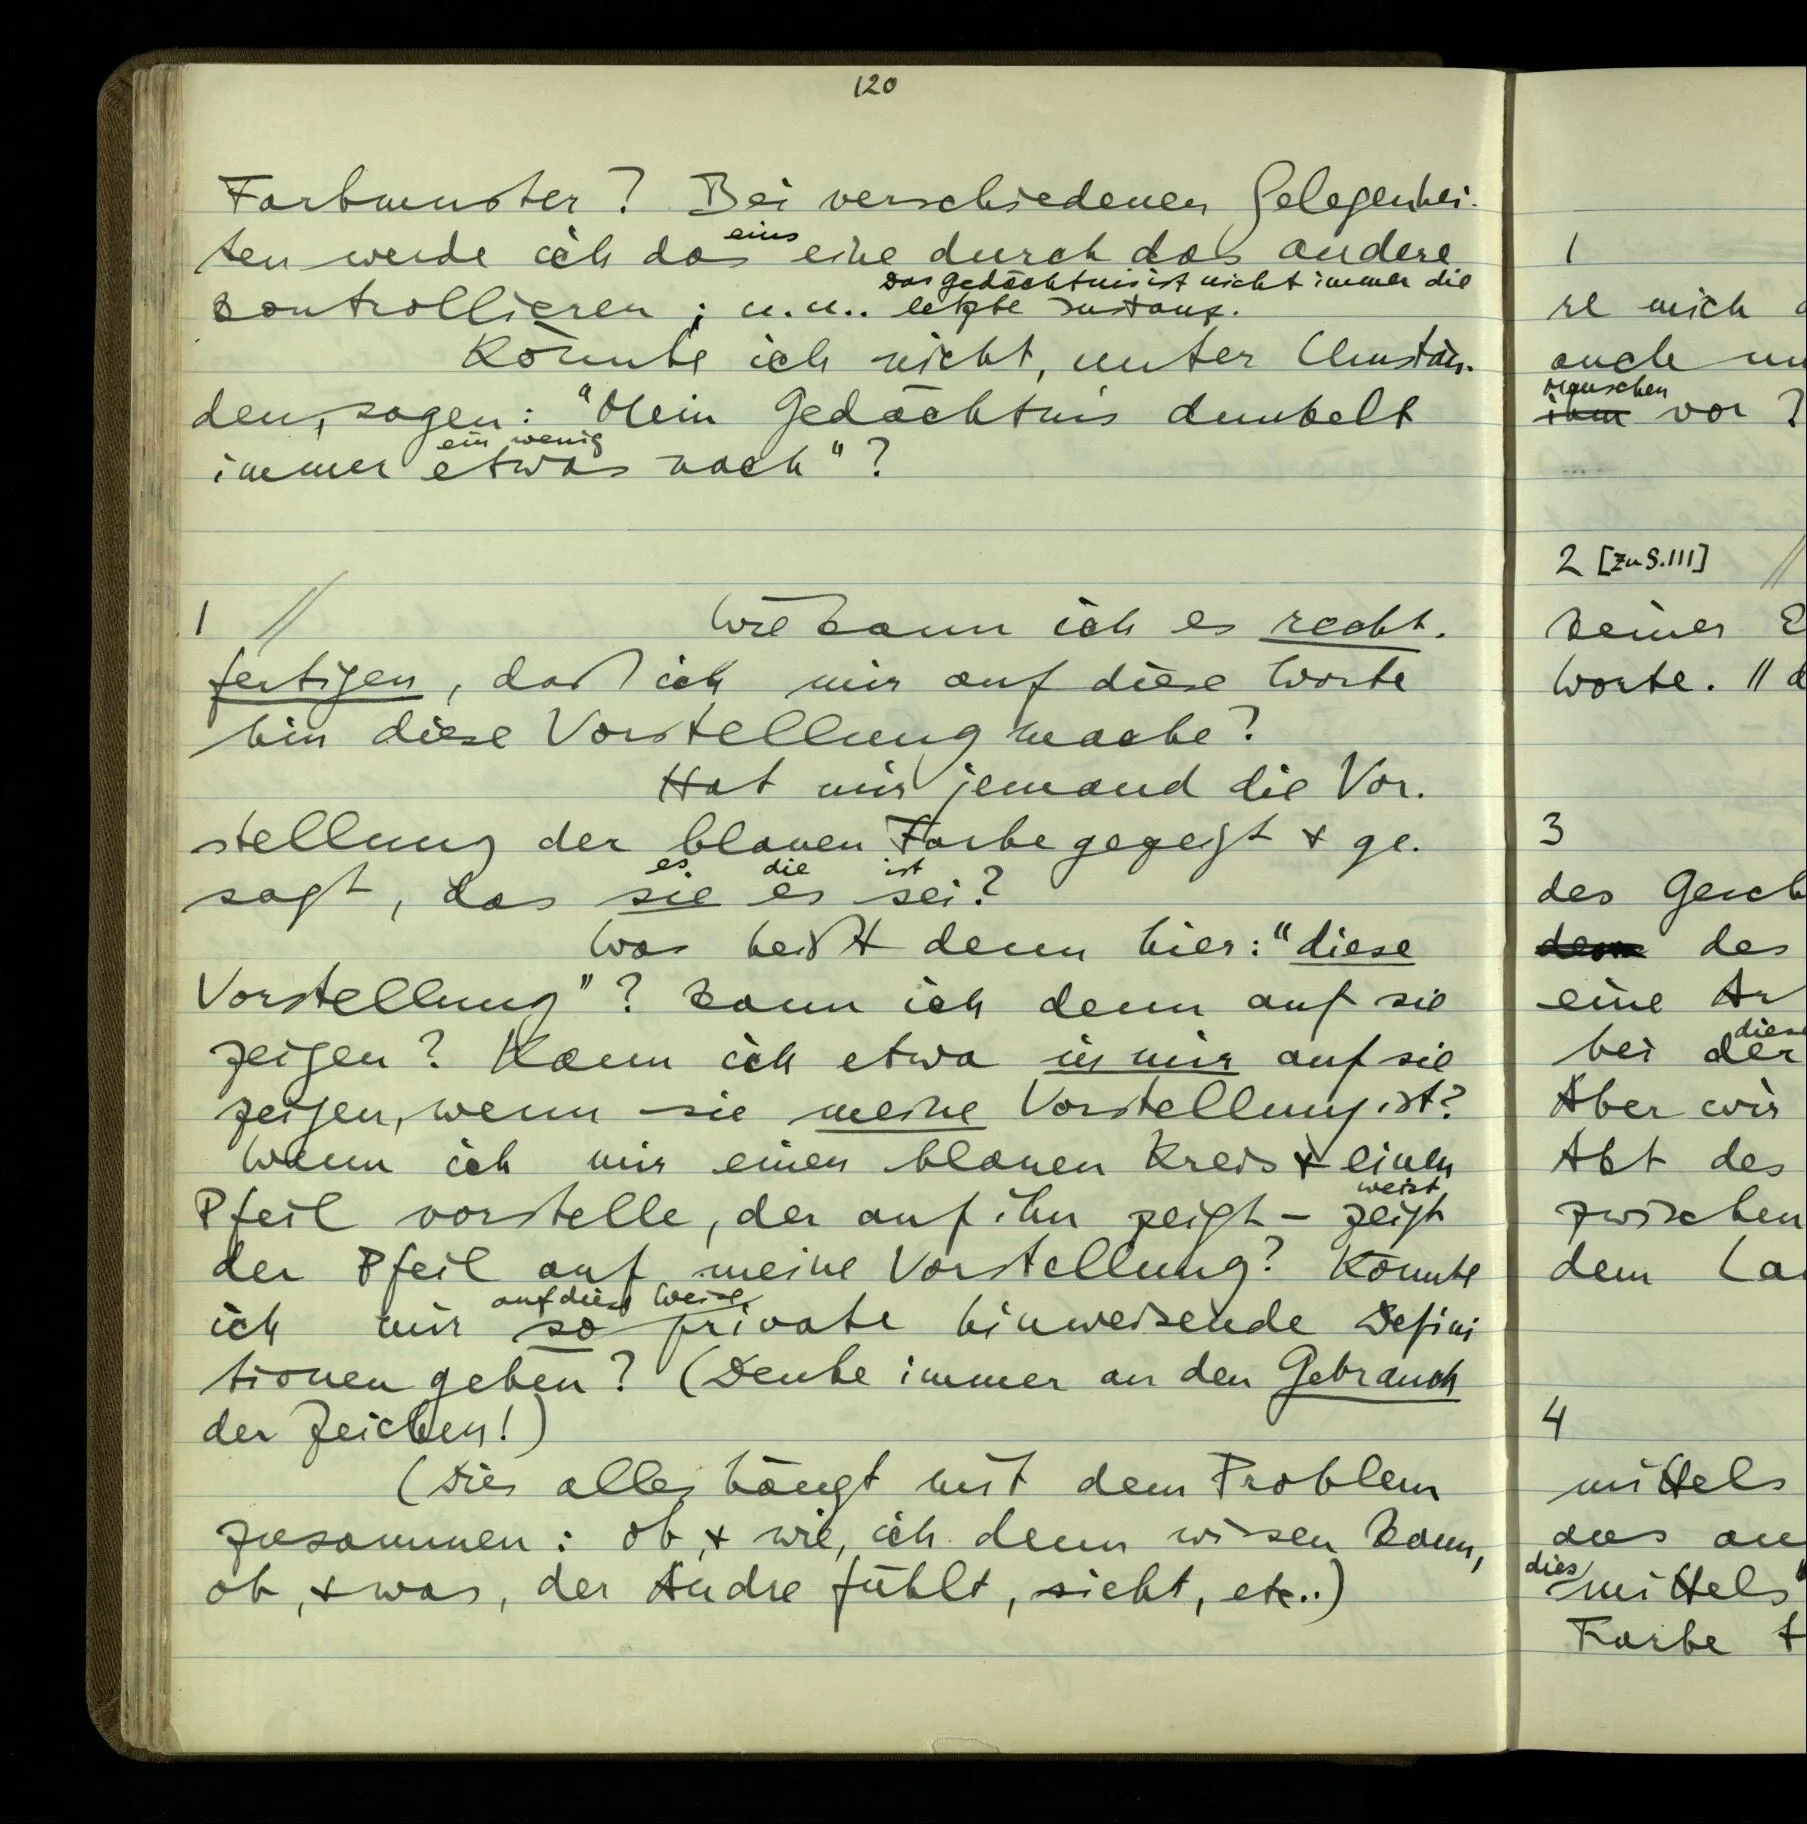 120
Farbmuster? Bei verschiedenen Gelegenhei-
eins
ten werde ich das eine durch das andere
Das Gedächtnis ist nicht immer die
kontrollieren; u.u.. letzte Instanz.
Könnte ich nicht, unter Umstän-
den, sagen: "Mein Gedächtnis dunkelt
ein wenig
immer etwas nach"?
1 // Wie kann ich es recht-
fertigen, daß ich mir auf diese Worte
hin diese Vorstellung mache?
Hat mir jemand die Vor-
stellung der blauen Farbe gezeigt & ge-
es die ist
sagt, das sie es sei?
Was heißt denn hier: "diese
Vorstellung"? Kann ich denn auf sie
zeigen? Kann ich etwa in mir auf sie
zeigen, wenn sie meine Vorstellung ist?
Wenn ich mir einen blauen Kreis & einen
weist
Pfeil vorstelle, der auf ihn zeigt – zeigt
der Pfeil auf meine Vorstellung? Könnte
auf diese Weise
ich mir so private hinweisende Defini
tionen geben? (Denke immer an den Gebrauch
der Zeichen!)
(Dies alles hängt mit dem Problem
zusammen: ob, & wie, ich denn wissen kann,
ob, & was, der Andre fühlt, sieht, etc..)
1
re mich
auch
Menschen
ihm vor?
2 [Zu S.111] //
keiner E
Worte. // d
3
des Gesch
dem des
eine Ar
diese
bei der
Aber wir
Akt des
zwischen
dem La
4
mittels
aus au
dies
mittels"
Farbe t